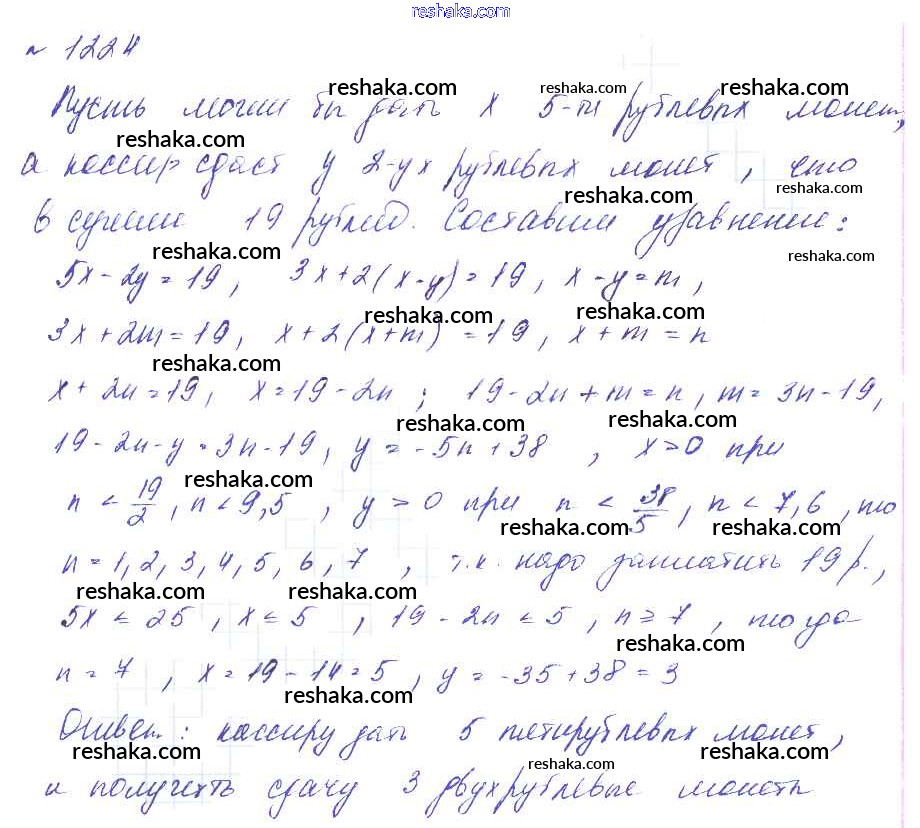 reshaka.com
№ 1224
reshaka.com reshaka.com reshaka.com
Пусть могли бы дать x 5-ти рублевых монет,
reshaka.com
а кассир сдаст y 2-ух рублевых монет, что
reshaka.com reshaka.com
в сумме 19 рублей. Составим уравнение:
reshaka.com reshaka.com
5x - 2y = 19, 3x + 2(x - y) = 19, x - y = m,
reshaka.com reshaka.com
3x + 2m = 19, x + 2(x + m) = 19, x + m = n
reshaka.com
x + 2n = 19, x = 19 - 2n; 19 - 2n + m = n, m = 3n - 19,
reshaka.com reshaka.com
19 - 2n - y = 3n - 19, y = -5n + 38, x > 0 при
reshaka.com
n < 19/2, n < 9,5, y > 0 при n < 38/5, n < 7,6, то
reshaka.com reshaka.com
n = 1, 2, 3, 4, 5, 6, 7, т.к. надо заплатить 19 р.,
reshaka.com reshaka.com
5x ≤ 25, x ≤ 5, 19 - 2n ≤ 5, n ≥ 7, тогда
reshaka.com
n = 7, x = 19 - 14 = 5, y = -35 + 38 = 3
reshaka.com
Ответ: кассиру дать 5 пятирублевых монет,
reshaka.com reshaka.com reshaka.com
и получить сдачу 3 двухрублевые монеты